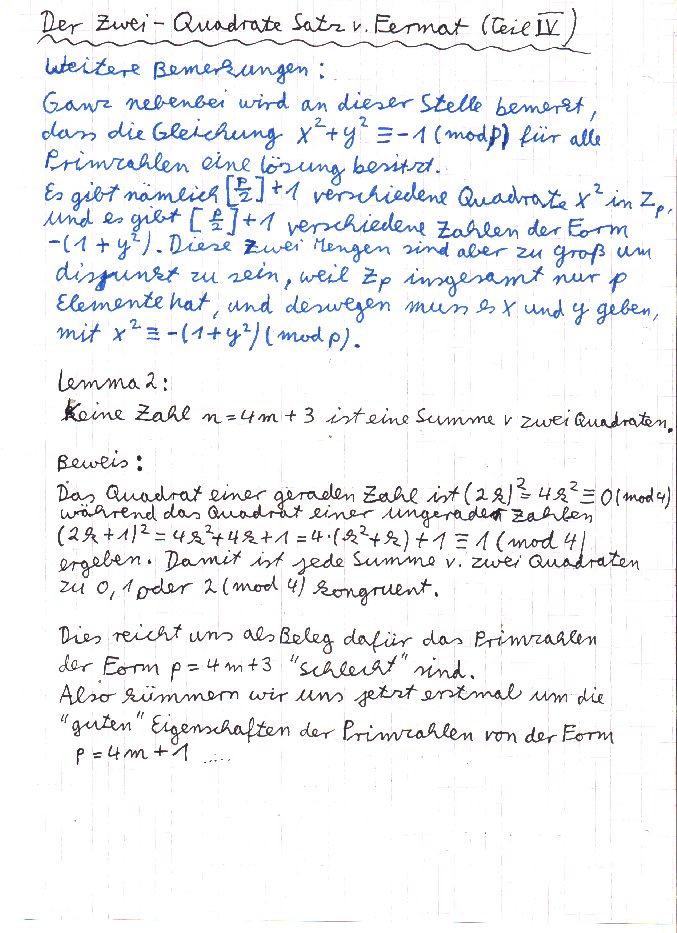 Der Zwei-Quadrate Satz v. Fermat (Teil IV)
Weitere Bemerkungen:
Ganz nebenbei wird an dieser Stelle bemerkt,
dass die Gleichung x²+y² ≡ -1 (mod p) für alle
Primzahlen eine lösung besitzt.
Es gibt nämlich [p/2]+1 verschiedene Quadrate x² in Zp,
und es gibt [p/2]+1 verschiedene Zahlen der Form
-(1+y²). Diese zwei Mengen sind aber zu groß um
disjunkt zu sein, weil Zp insgesamt nur p
Elemente hat, und deswegen muss es x und y geben,
mit x² ≡ -(1+y²) (mod p).
Lemma 2:
Keine Zahl n = 4m + 3 ist eine Summe v zwei Quadraten.
Beweis:
Das Quadrat einer geraden Zahl ist (2k)² = 4k² ≡ 0 (mod 4)
während das Quadrat einer ungeraden Zahlen
(2k+1)² = 4k²+4k+1 = 4·(k²+k)+1 ≡ 1 (mod 4)
ergeben. Damit ist jede Summe v. zwei Quadraten
zu 0, 1 oder 2 (mod 4) kongruent.
Dies reicht uns als Beleg dafür das Primzahlen
der Form p = 4m+3 "schlecht" sind.
Also kümmern wir uns jetzt erstmal um die
"guten" Eigenschaften der Primzahlen von der Form
p = 4m + 1 .....